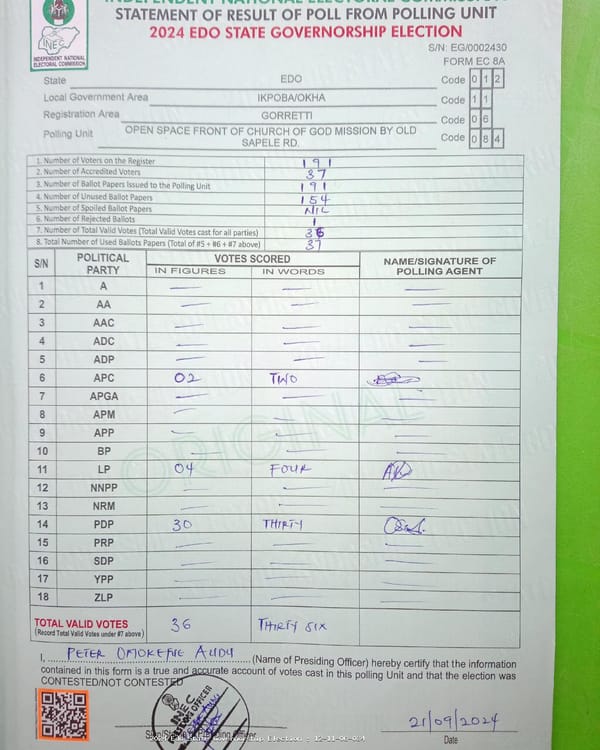 INDEPENDENT NATIONAL ELECTORAL COMMISSION
STATEMENT OF RESULT OF POLL FROM POLLING UNIT
2024 EDO STATE GOVERNORSHIP ELECTION
INEC
INDEPENDENT NATIONAL
ELECTORAL COMMISSION
S/N: EG/0002430
FORM EC 8A
State EDO Code 0 1 2
Local Government Area IKPOBA/OKHA Code 1 1
Registration Area GORRETTI Code 0 6
Polling Unit OPEN SPACE FRONT OF CHURCH OF GOD MISSION BY OLD SAPELE RD. Code 0 8 4
1. Number of Voters on the Register 191
2. Number of Accredited Voters 37
3. Number of Ballot Papers Issued to the Polling Unit 191
4. Number of Unused Ballot Papers 154
5. Number of Spoiled Ballot Papers NIL
6. Number of Rejected Ballots 1
7. Number of Total Valid Votes (Total Valid Votes cast for all parties) 36
8. Total Number of Used Ballots Papers (Total of #5 + #6 + #7 above) 37
S/N POLITICAL PARTY VOTES SCORED NAME/SIGNATURE OF POLLING AGENT
IN FIGURES IN WORDS
1 A — — —
2 AA — — —
3 AAC — — —
4 ADC — — —
5 ADP — — —
6 APC 02 TWO
7 APGA — — —
8 APM — — —
9 APP — — —
10 BP — — —
11 LP 04 FOUR
12 NNPP — — —
13 NRM — — —
14 PDP 30 THIRTY
15 PRP — — —
16 SDP — — —
17 YPP — — —
18 ZLP — — —
ORIGINAL
TOTAL VALID VOTES 36 THIRTY SIX
(Record Total Valid Votes under #7 above)
I, PETER OMOKEFIE AUDU (Name of Presiding Officer) hereby certify that the information
contained in this form is a true and accurate account of votes cast in this polling Unit and that the election was
CONTESTED/NOT CONTESTED
INEC
21/09/2024
Date